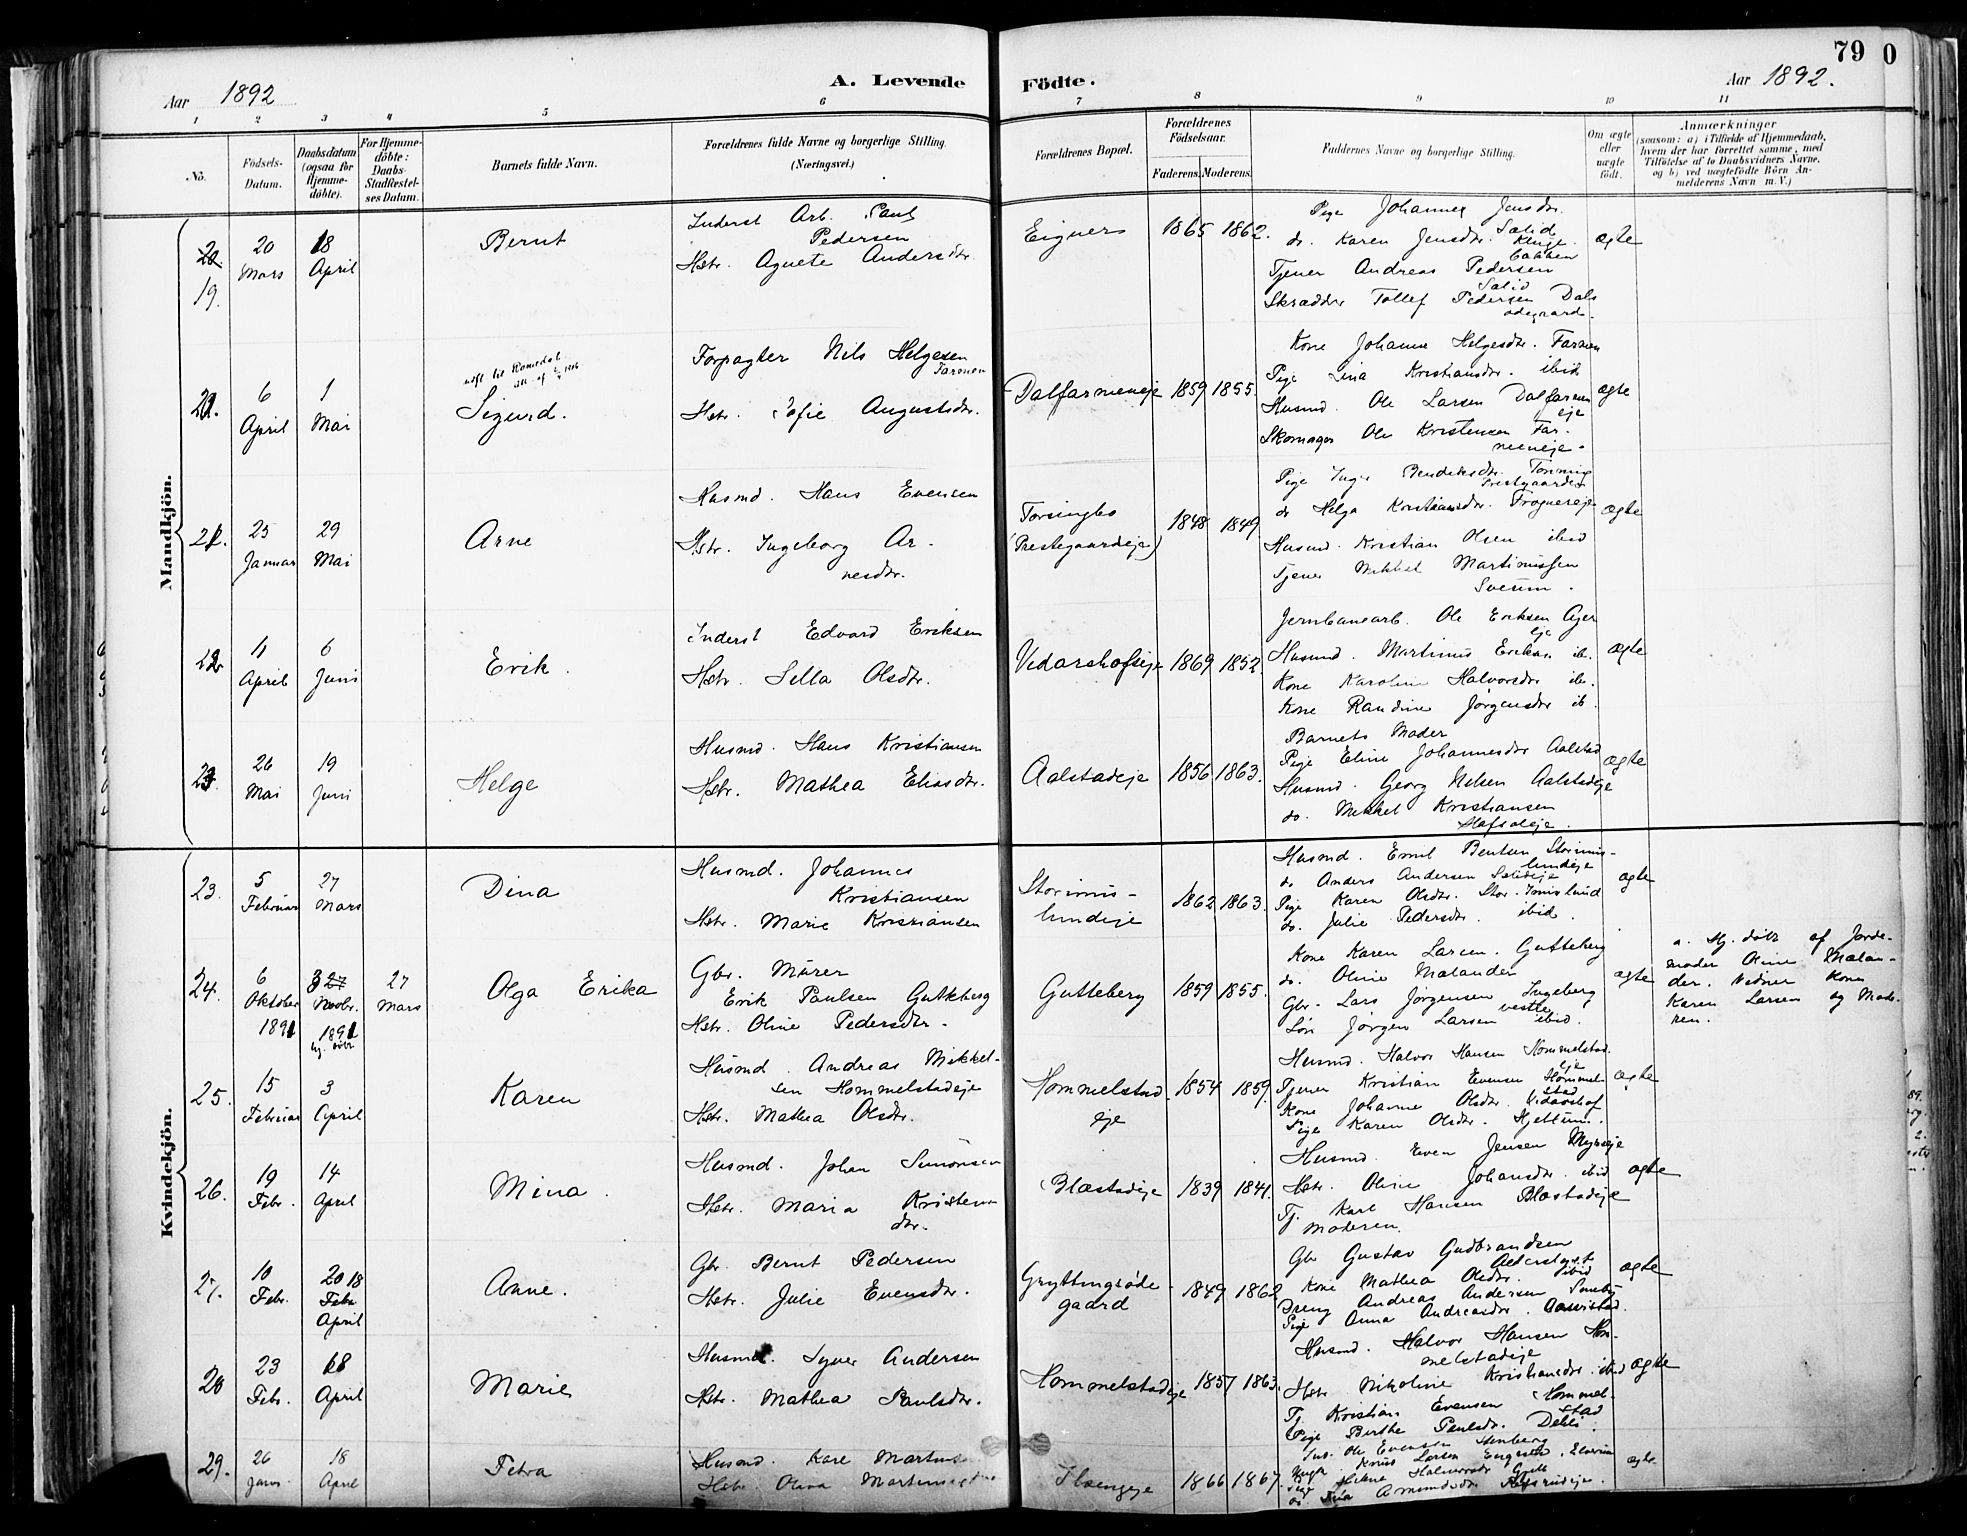 79
0
Aar 1892
A. Levende Födte.
Aar 1892.
1 2 3 4 5 6 7 8 9 10 11
No.
Födsels-Datum.
Daabsdatum (ogsaa for Hjemmedöbte).
For Hjemmedöbte: Daabs-Stadfæstelses Datum.
Barnets fulde Navn.
Forældrenes fulde Navne og borgerlige Stilling. (Næringsvei.)
Forældrenes Bopæl.
Forældrenes Födselsaar.
Faderens. Moderens.
Faddernes Navne og borgerlige Stilling.
Om ægte eller uægte födt.
Anmærkninger
(saasom: a) i Tilfælde af Hjemmedaab, hvem der har forrettet samme, med Tilföielse af to Daabsvidners Navne, og b) ved uægtefödte Börn Anmelderens Navn m. V.)
Mandkjön.
19.
20 Mars
18 April
Bernt
Inderst Arb. Paul Pedersen
Hstr. Agnete Andersdtr.
Eigners
1865 1862.
Pige Johannes Jensdtr. Salid
do. Karen Jensdtr. Kluge-bakken
Tjener Andreas Pedersen Salid
Skrædder Tollef Pedersen Dals-ødegaard.
ægte
6 April
1 Mai
Sigurd.
Forpagter Nils Helgesen
Hstr. Sofie Augustsdtr.
Dalfarmeneje
1859 1855.
Kone Johanne Helgesdtr. Farmen
Pige Lina Kristiansdtr. ibid
Husmd. Ole Larsen Dalfarmeneje
Skomager Ole Kristensen Far-meneje.
ægte
21.
25 Januar
29 Mai
Arne
Husmd. Hans Evensen
Hstr. Ingeborg Ar-nesdtr.
Torsingbo (Prestegaardeje)
1848 1849.
Pige Inger Bendiksdtr. Prestgaarden
do Helga Kristiansdtr. Frognereje
Husmd. Kristian Olsen ibid
Tjener Mikkel Martinussen
ægte
11 April
6 Juni
Erik.
Inderst Edvard Eriksen
Hstr. Sella Olsdtr.
Vidarshofseje
1869 1852.
Jernbanearb. Ole Eriksen Ajer eje
Husmd. Martinus Eriksen ib.
Kone Karoline Halvorsdtr ib.
Kone Randine Jørgensdtr ib.
ægte
26 Mai
19 Juni
Helge
Husmd. Hans Kristiansen
Hstr. Mathea Eliasdtr.
Aalstadeje
1856 1863.
Barnets Moder
Pige Eline Johannesdtr Aalstad
Husmd. Georg Nilsen Aalstadeje
do. Mikkel Kristiansen
ægte
Kvindekjön.
23.
5 Februar
27 Mars
Dina
Husmd. Johannes Kristiansen
Hstr. Marie Kristiansen
Storimis-lundeje
1862 1863.
Husmd. Emil Bentsen Storimis-lundeje
do Anders Andersen Salideje
Pige Karen Olsdtr. Stor-Imislund
do. Julie Pedersdtr. ibid.
ægte
24.
6 Oktober 1891
3 27 Novbr. 1891 hj. døbt
27 Mars
Olga Erika
Gbr. Mürer
Erik Paulsen Gutteberg
Hstr. Oline Pedersdtr.
Gutteberg
1859 1855.
Kone Karen Larsen. Gutteberg
do. Oline Malander
Gbr. Lars Jørgensen Ingeberg vestle
Søn Jørgen Larsen ibid.
ægte
a. Hj. døbt af Jorde-moder Oline Malan-der. Vidner Kone Karen Larsen og Mode-ren.
25.
15 Februar
3 April
Karen
Husmd. Andreas Mikkel-sen Hommelstadeje
Hstr. Mathea Olsdtr.
Hommelstad eje
1854 1859.
Husmd. Halvor Hansen Hommelstad. eje
Tjener Kristian Evensen Hommel-stad
Kone Johanne Olsdtr. Vidarshof
Pige Karen Olsdtr. Hjellum.
ægte
26.
19 Febr.
14 April
Mina.
Husmd. Johan Simonsen
Hstr. Maria Kristens dtr.
Blæstadeje
1839 1841.
Husmd. Even Jensen Myrseje
Hstr. Oline Johansdtr. ibid
Tj. Karl Hansen Blæstadeje
Moderen.
ægte
27.
10 Febr.
20 18 Febr April
Anne.
Gbr. Bernt Pedersen
Hstr. Julie Evensdtr.
Gryttingsøde-gaard
1849 1862
Gbr Gustav Gudbrandsen
Kone Mathea Olsdtr. ibid
Dreng Andreas Andersen
Pige Anna Andreasdtr.
ægte
23 Febr.
18 April
Marie
Husmd. Syver Andersen
Hstr. Mathea Paulsdtr.
Hommelstadeje
1857 1863.
Husmd. Halvor Hansen Hom-melstadeje
Hstr Nikoline Kristiansdtr. ibid
Tj Kristian Evensen Hommel-stad
Pige Berthe Paulsdtr.
ægte
29.
26 Janv.
18 April
Petra
Husmd. Karl Martins
Hstr. Oliva
1866 1867.
Ole Evensen Stenberg
Knud Larsen
ægte